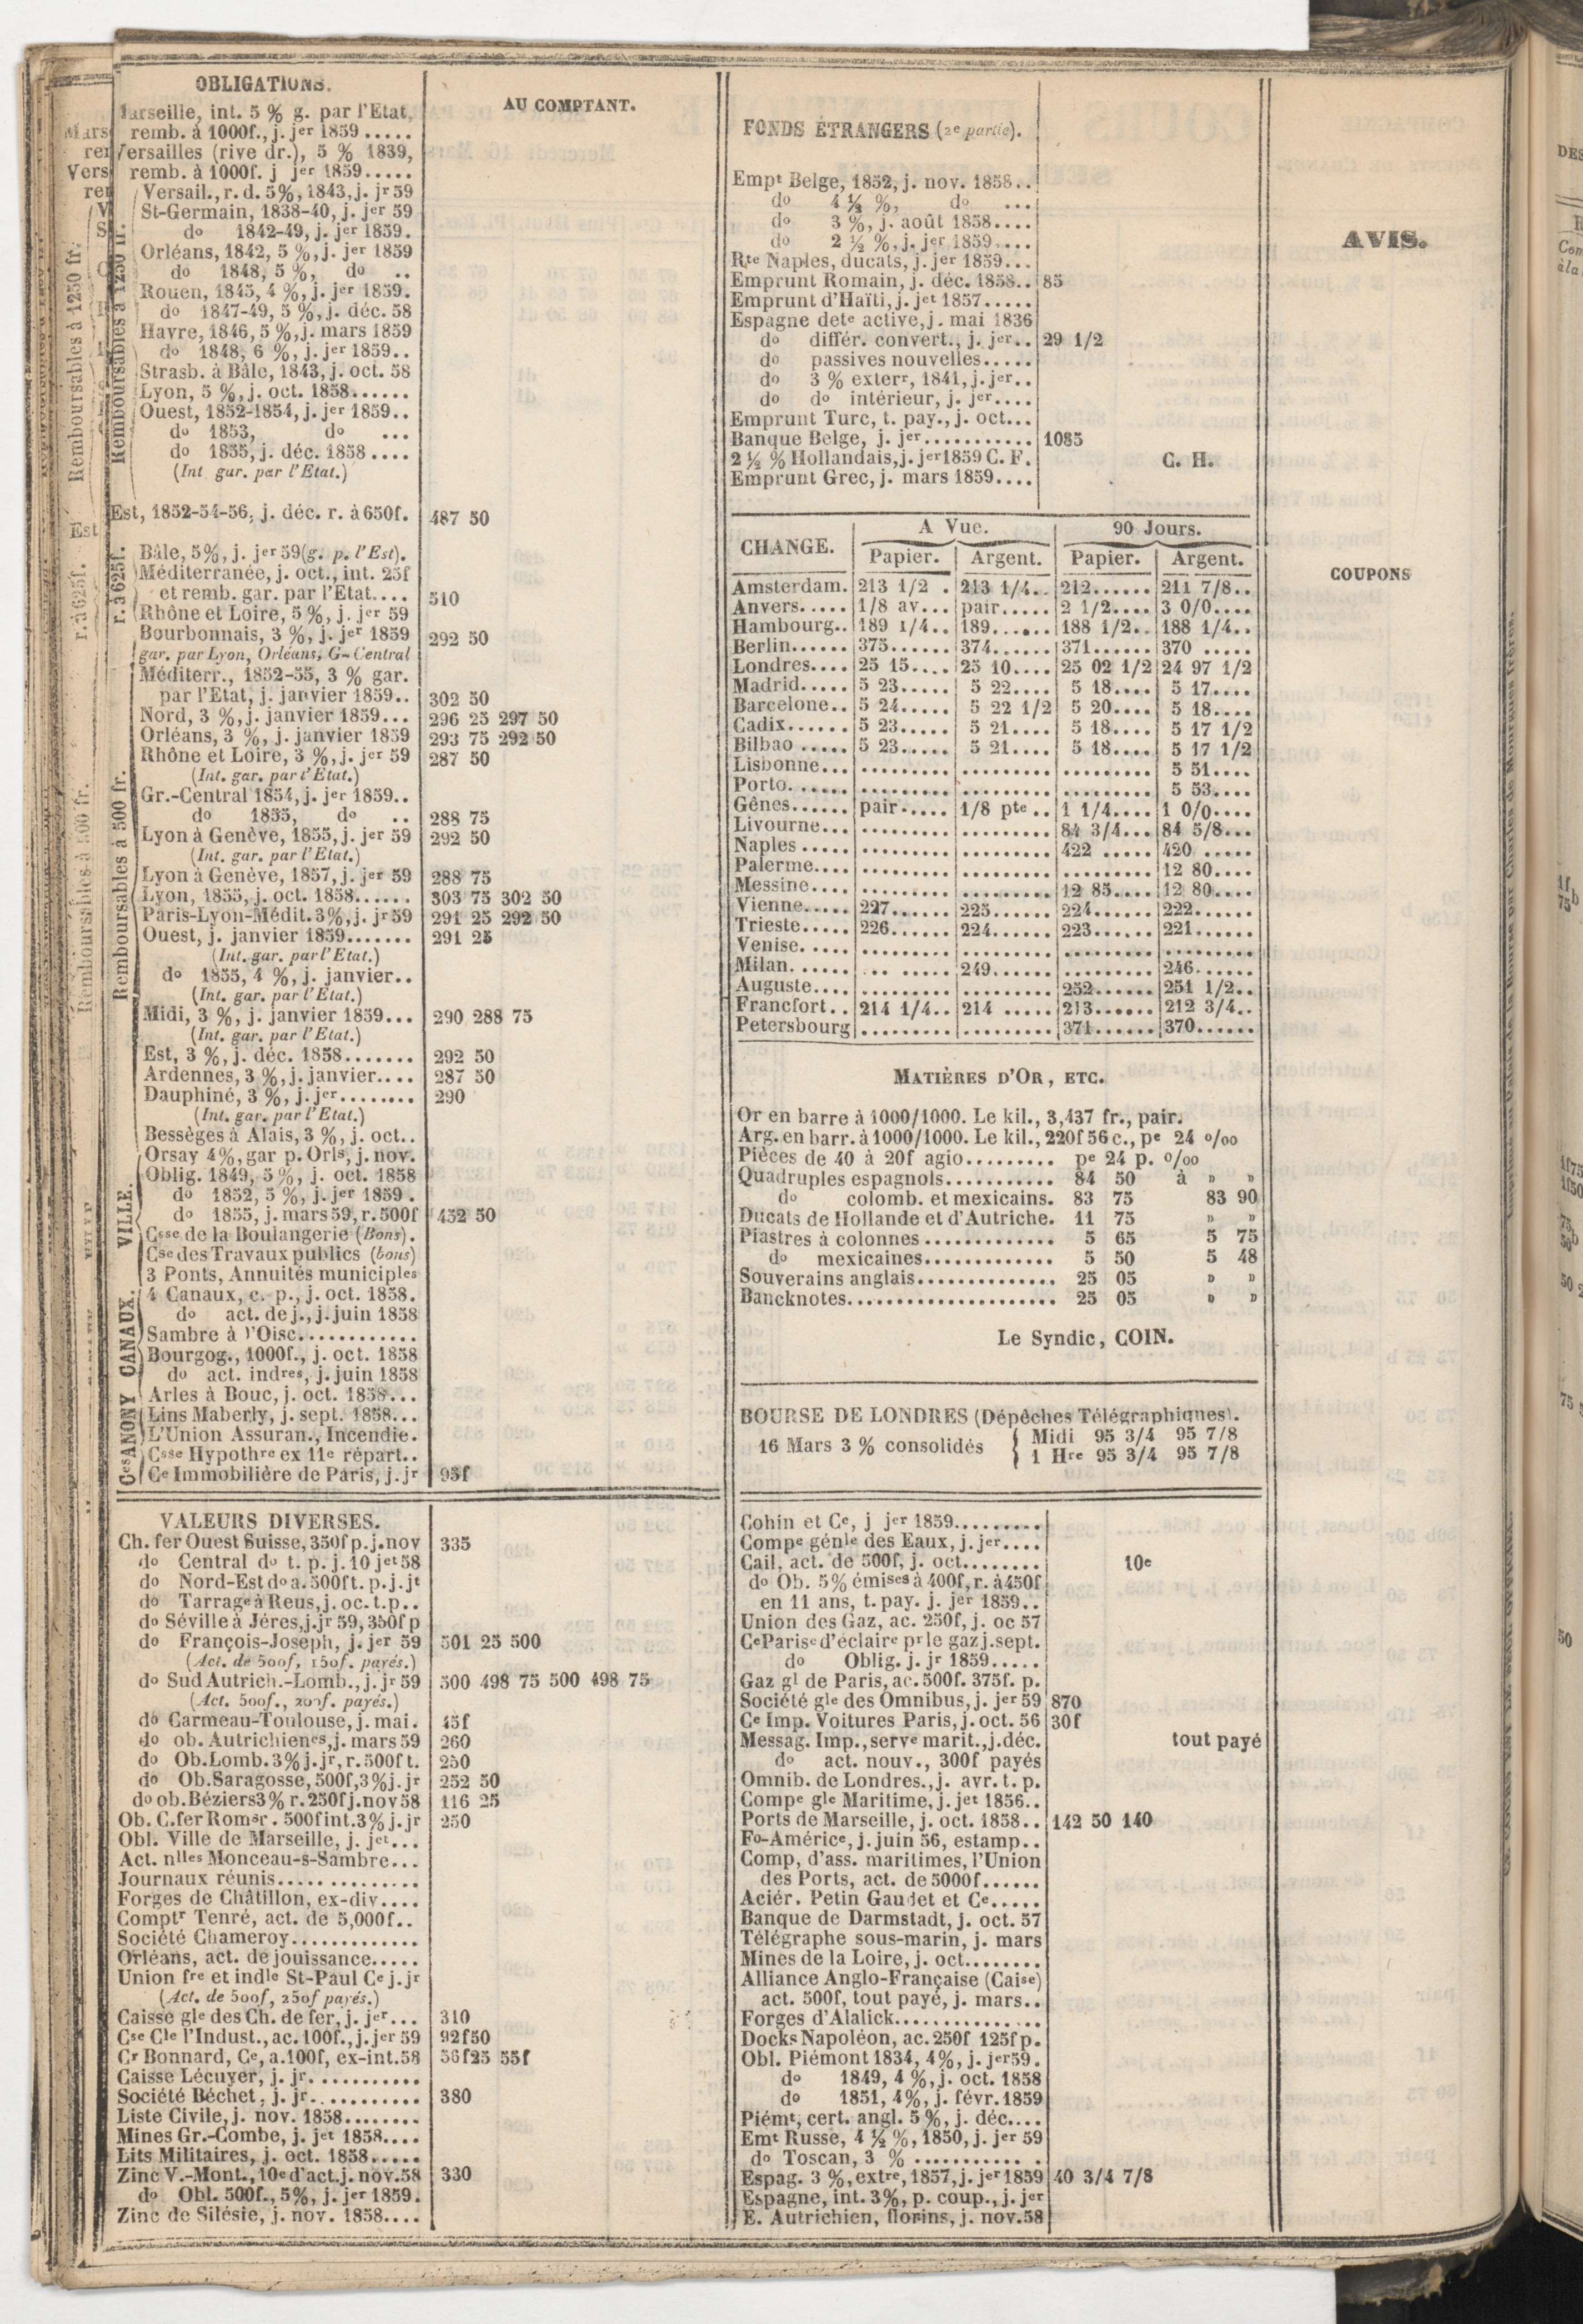 OBLIGATIONS.
AU COMPTANT.
Marseille, int. 5 % g. par l'Etat,
remb. à 1000f., j. jer 1859.....
Versailles (rive dr.), 5 % 1839,
remb. à 1000f. j jer 1859.....
Remboursables à 1250 fr.
Versail., r. d. 5%, 1843, j. jr 59
St-Germain, 1838-40, j. jer 59
do 1842-49, j. jer 1859.
Orléans, 1842, 5 %, j. jer 1859
do 1848, 5 %, do ..
Rouen, 1845, 4 %, j. jer 1859.
do 1847-49, 5 %, j. déc. 58
Havre, 1846, 5 %, j. mars 1859
do 1848, 6 %, j. jer 1859..
Strasb. à Bâle, 1843, j. oct. 58
Lyon, 5 %, j. oct. 1858......
Ouest, 1852-1854, j. jer 1859..
do 1853, do ...
do 1855, j. déc. 1858....
(Int gar. par l'Etat.)
Est, 1852-54-56, j. déc. r. à 650f. 487 50
r. à 625f.
Bâle, 5%, j. jer 59 (g. p. l'Est).
Méditerranée, j. oct., int. 25f
et remb. gar. par l'Etat.... 510
Rhône et Loire, 5 %, j. jer 59
Bourbonnais, 3 %, j. jer 1859 292 50
gar. par Lyon, Orléans, G-Central
Remboursables à 500 fr.
Méditerr., 1852-55, 3 % gar.
par l'Etat, j. janvier 1859.. 302 50
Nord, 3 %, j. janvier 1859... 296 25 297 50
Orléans, 3 %, j. janvier 1859 293 75 292 50
Rhône et Loire, 3 %, j. jer 59 287 50
(Int. gar. par l'Etat.)
Gr.-Central 1854, j. jer 1859..
do 1855, do .. 288 75
Lyon à Genève, 1855, j. jer 59 292 50
(Int. gar. par l'Etat.)
Lyon à Genève, 1857, j. jer 59 288 75
Lyon, 1855, j. oct. 1858...... 303 75 302 50
Paris-Lyon-Médit. 3%, j. jr 59 291 25 292 50
Ouest, j. janvier 1859....... 291 25
(Int. gar. par l'Etat.)
do 1855, 4 %, j. janvier..
(Int. gar. par l'Etat.)
Midi, 3 %, j. janvier 1859... 290 288 75
(Int. gar. par l'Etat.)
Est, 3 %, j. déc. 1858....... 292 50
Ardennes, 3 %, j. janvier.... 287 50
Dauphiné, 3 %, j. jer........ 290
(Int. gar. par l'Etat.)
Bessèges à Alais, 3 %, j. oct..
Orsay 4%, gar p. Orls, j. nov.
VILLE.
Oblig. 1849, 5 %, j. oct. 1858
do 1852, 5 %, j. jer 1859.
do 1855, j. mars 59, r. 500f 452 50
Csse de la Boulangerie (Bons).
Cse des Travaux publics (bons)
3 Ponts, Annuités municiples
CANAUX.
4 Canaux, c. p., j. oct. 1858.
do act. de j., j. juin 1858
Sambre à l'Oise............
Bourgog., 1000f., j. oct. 1858
do act. indres, j. juin 1858
Arles à Bouc, j. oct. 1858...
Ces ANONY
Lins Maberly, j. sept. 1858...
L'Union Assuran., Incendie.
Csse Hypothre ex 11e répart..
Ce Immobilière de Paris, j. jr 95f
VALEURS DIVERSES.
Ch. fer Ouest Suisse, 350f p. j. nov 335
do Central do t. p. j. 10 jet 58
do Nord-Est do a. 500f t. p. j. jt
do Tarrage à Reus, j. oc. t. p..
do Séville à Jéres, j. jr 59, 350f p
do François-Joseph, j. jer 59 501 25 500
(Act. de 500f, 150f. payés.)
do Sud Autrich.-Lomb., j. jr 59 500 498 75 500 498 75
(Act. 500f., 200f. payés.)
do Carmeau-Toulouse, j. mai. 45f
do ob. Autrichienes, j. mars 59 260
do Ob. Lomb. 3% j. jr, r. 500f t. 250
do Ob. Saragosse, 500f, 3% j. jr 252 50
do ob. Béziers 3% r. 250f j. nov 58 116 25
Ob. C. fer Romsr. 500f int. 3% j. jr 250
Obl. Ville de Marseille, j. jet...
Act. nlles Monceau-s-Sambre...
Journaux réunis..............
Forges de Châtillon, ex-div....
Comptr Tenré, act. de 5,000f..
Société Chameroy.............
Orléans, act. de jouissance.....
Union fre et indle St-Paul Ce j. jr
(Act. de 500f, 250f payés.)
Caisse gle des Ch. de fer, j. jer... 310
Cse Cle l'Indust., ac. 100f., j. jer 59 92f50
Cr Bonnard, Ce, a. 100f, ex-int. 58 56f25 55f
Caisse Lécuyer, j. jr...........
Société Béchet, j. jr........... 380
Liste Civile, j. nov. 1858........
Mines Gr.-Combe, j. jet 1858....
Lits Militaires, j. oct. 1858.....
Zinc V.-Mont., 10e d'act. j. nov. 58 330
do Obl. 500f., 5%, j. jer 1859.
Zinc de Silésie, j. nov. 1858....
FONDS ÉTRANGERS (2e partie).
Empt Belge, 1852, j. nov. 1858..
do 4 ½ %, do ...
do 3 %, j. août 1858....
do 2 ½ %, j. jer 1859....
Rte Naples, ducats, j. jer 1859...
Emprunt Romain, j. déc. 1858.. 85
Emprunt d'Haïti, j. jet 1857.....
Espagne dete active, j. mai 1836
do différ. convert., j. jer.. 29 1/2
do passives nouvelles.....
do 3 % exterr, 1841, j. jer..
do do intérieur, j. jer....
Emprunt Turc, t. pay., j. oct...
Banque Belge, j. jer........... 1085
2 ½ % Hollandais, j. jer 1859 C. F. C. H.
Emprunt Grec, j. mars 1859....
CHANGE. A Vue. 90 Jours.
Papier. Argent. Papier. Argent.
Amsterdam. 213 1/2 . 213 1/4.. 212...... 211 7/8..
Anvers..... 1/8 av... pair..... 2 1/2.... 3 0/0....
Hambourg.. 189 1/4.. 189...... 188 1/2.. 188 1/4..
Berlin...... 375...... 374...... 371...... 370 .....
Londres.... 25 15.... 25 10.... 25 02 1/2 24 97 1/2
Madrid..... 5 23..... 5 22.... 5 18.... 5 17....
Barcelone.. 5 24..... 5 22 1/2 5 20.... 5 18....
Cadix...... 5 23..... 5 21.... 5 18.... 5 17 1/2
Bilbao ..... 5 23..... 5 21.... 5 18.... 5 17 1/2
Lisbonne... ......... ......... ......... 5 51....
Porto...... 5 53....
Gênes...... pair..... 1/8 pte .. 1 1/4.... 1 0/0....
Livourne... ......... ......... 84 3/4... 84 5/8...
Naples ..... ......... ......... 422 ..... 420 .....
Palerme.... ......... ......... ......... 12 80....
Messine.... ......... ......... 12 85.... 12 80....
Vienne..... 227...... 225...... 224...... 222......
Trieste..... 226...... 224...... 223...... 221......
Venise..... ......... ......... ......... .........
Milan...... ... ..... 249...... ......... 246......
Auguste.... ......... ......... 252...... 251 1/2..
Francfort.. 214 1/4.. 214 ..... 213...... 212 3/4..
Petersbourg ......... ......... 371...... 370......
MATIÈRES D'OR, ETC.
Or en barre à 1000/1000. Le kil., 3,437 fr., pair.
Arg. en barr. à 1000/1000. Le kil., 220f 56 c., pe 24 o/oo
Pièces de 40 à 20f agio......... pe 24 p. o/oo
Quadruples espagnols........... 84 50 à » »
do colomb. et mexicains. 83 75 83 90
Ducats de Hollande et d'Autriche. 11 75 » »
Piastres à colonnes............. 5 65 5 75
do mexicaines............. 5 50 5 48
Souverains anglais.............. 25 05 » »
Bancknotes..................... 25 05 » »
Le Syndic, COIN.
BOURSE DE LONDRES (Dépêches Télégraphiques).
16 Mars 3 % consolidés
Midi 95 3/4 95 7/8
1 Hre 95 3/4 95 7/8
Cohin et Ce, j jer 1859.........
Compe génle des Eaux, j. jer....
Cail, act. de 500f, j. oct........ 10e
do Ob. 5% émises à 400f, r. à 450f
en 11 ans, t. pay. j. jer 1859..
Union des Gaz, ac. 250f, j. oc 57
Ce Parise d'éclaire pr le gaz j. sept.
do Oblig. j. jr 1859.....
Gaz gl de Paris, ac. 500f. 375f. p.
Société gle des Omnibus, j. jer 59 870
Ce Imp. Voitures Paris, j. oct. 56 30f
Messag. Imp., serve marit., j. déc. tout payé
do act. nouv., 300f payés
Omnib. de Londres., j. avr. t. p.
Compe gle Maritime, j. jet 1856..
Ports de Marseille, j. oct. 1858.. 142 50 140
Fo-Américe, j. juin 56, estamp..
Comp. d'ass. maritimes, l'Union
des Ports, act. de 5000f......
Aciér. Petin Gaudet et Ce.....
Banque de Darmstadt, j. oct. 57
Télégraphe sous-marin, j. mars
Mines de la Loire, j. oct........
Alliance Anglo-Française (Caise)
act. 500f, tout payé, j. mars..
Forges d'Alalick...............
Docks Napoléon, ac. 250f 125f p.
Obl. Piémont 1834, 4%, j. jer 59.
do 1849, 4 %, j. oct. 1858
do 1851, 4%, j. févr. 1859
Piémt, cert. angl. 5 %, j. déc....
Emt Russe, 4 ½ %, 1850, j. jer 59
do Toscan, 3 % ...........
Espag. 3 %, extre, 1857, j. jer 1859 40 3/4 7/8
Espagne, int. 3%, p. coup., j. jer
E. Autrichien, florins, j. nov. 58
AVIS.
COUPONS